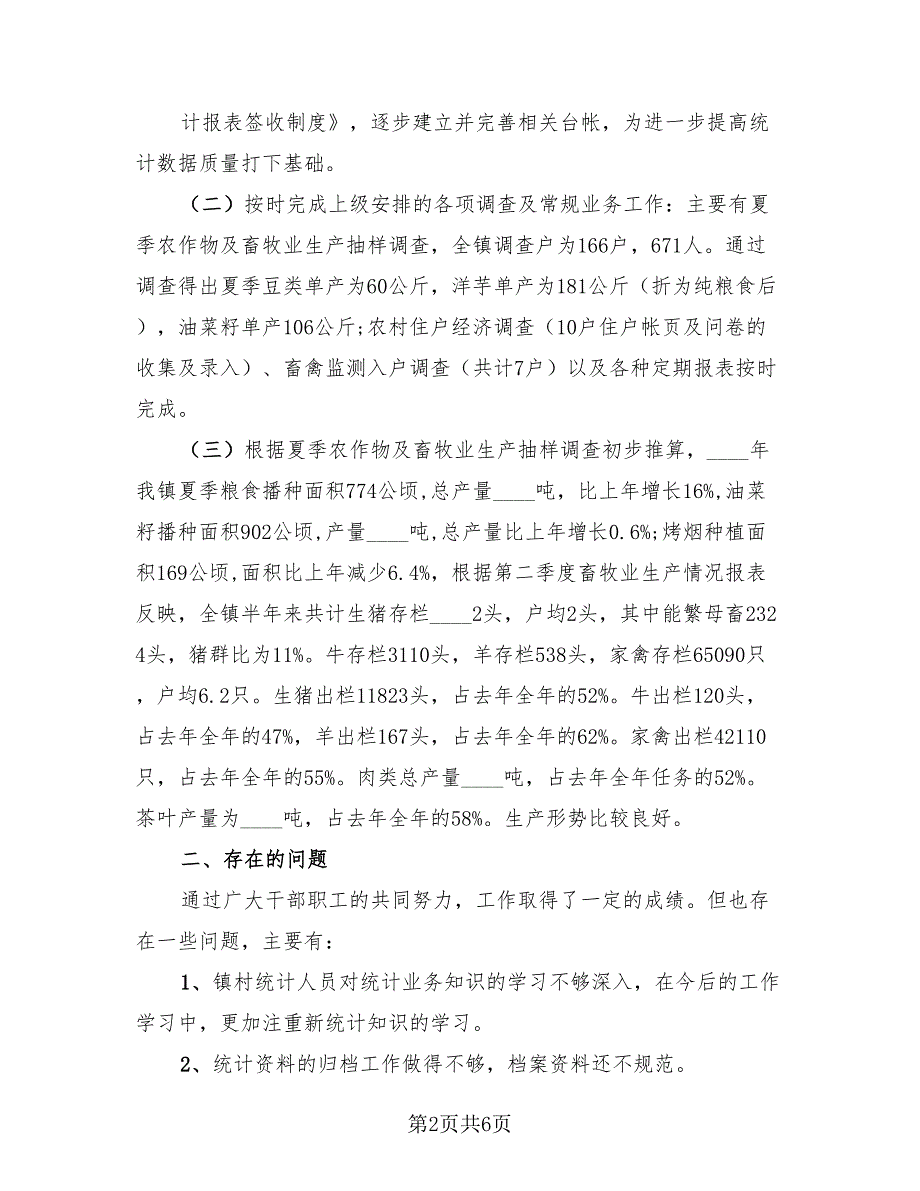 计报表签收制度》，逐步建立并完善相关台帐，为进一步提高统
计数据质量打下基础。
（二）按时完成上级安排的各项调查及常规业务工作：主要有夏
季农作物及畜牧业生产抽样调查，全镇调查户为166户，671人。通过
调查得出夏季豆类单产为60公斤，洋芋单产为181公斤（折为纯粮食后
），油菜籽单产106公斤;农村住户经济调查（10户住户帐页及问卷的
收集及录入）、畜禽监测入户调查（共计7户）以及各种定期报表按时
完成。
（三）根据夏季农作物及畜牧业生产抽样调查初步推算，____年
我镇夏季粮食播种面积774公顷,总产量____吨，比上年增长16%,油菜
籽播种面积902公顷,产量____吨,总产量比上年增长0.6%;烤烟种植面
积169公顷,面积比上年减少6.4%，根据第二季度畜牧业生产情况报表
反映，全镇半年来共计生猪存栏____2头，户均2头，其中能繁母畜232
4头，猪群比为11%。牛存栏3110头，羊存栏538头，家禽存栏65090只
，户均6.2只。生猪出栏11823头，占去年全年的52%。牛出栏120头，
占去年全年的47%，羊出栏167头，占去年全年的62%。家禽出栏42110
只，占去年全年的55%。肉类总产量____吨，占去年全年任务的52%。
茶叶产量为____吨，占去年全年的58%。生产形势比较良好。
二、存在的问题
通过广大干部职工的共同努力，工作取得了一定的成绩。但也存
在一些问题，主要有：
1、镇村统计人员对统计业务知识的学习不够深入，在今后的工作
学习中，更加注重新统计知识的学习。
2、统计资料的归档工作做得不够，档案资料还不规范。
第2页共6页